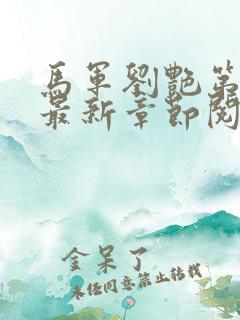 馬軍劉艷第
最新章節閱
金呆了
未經同意禁止轉載